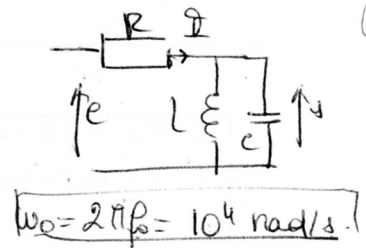 R
e
L
C
s
ω₀ = 2πf₀ = 10⁴ rad/s.